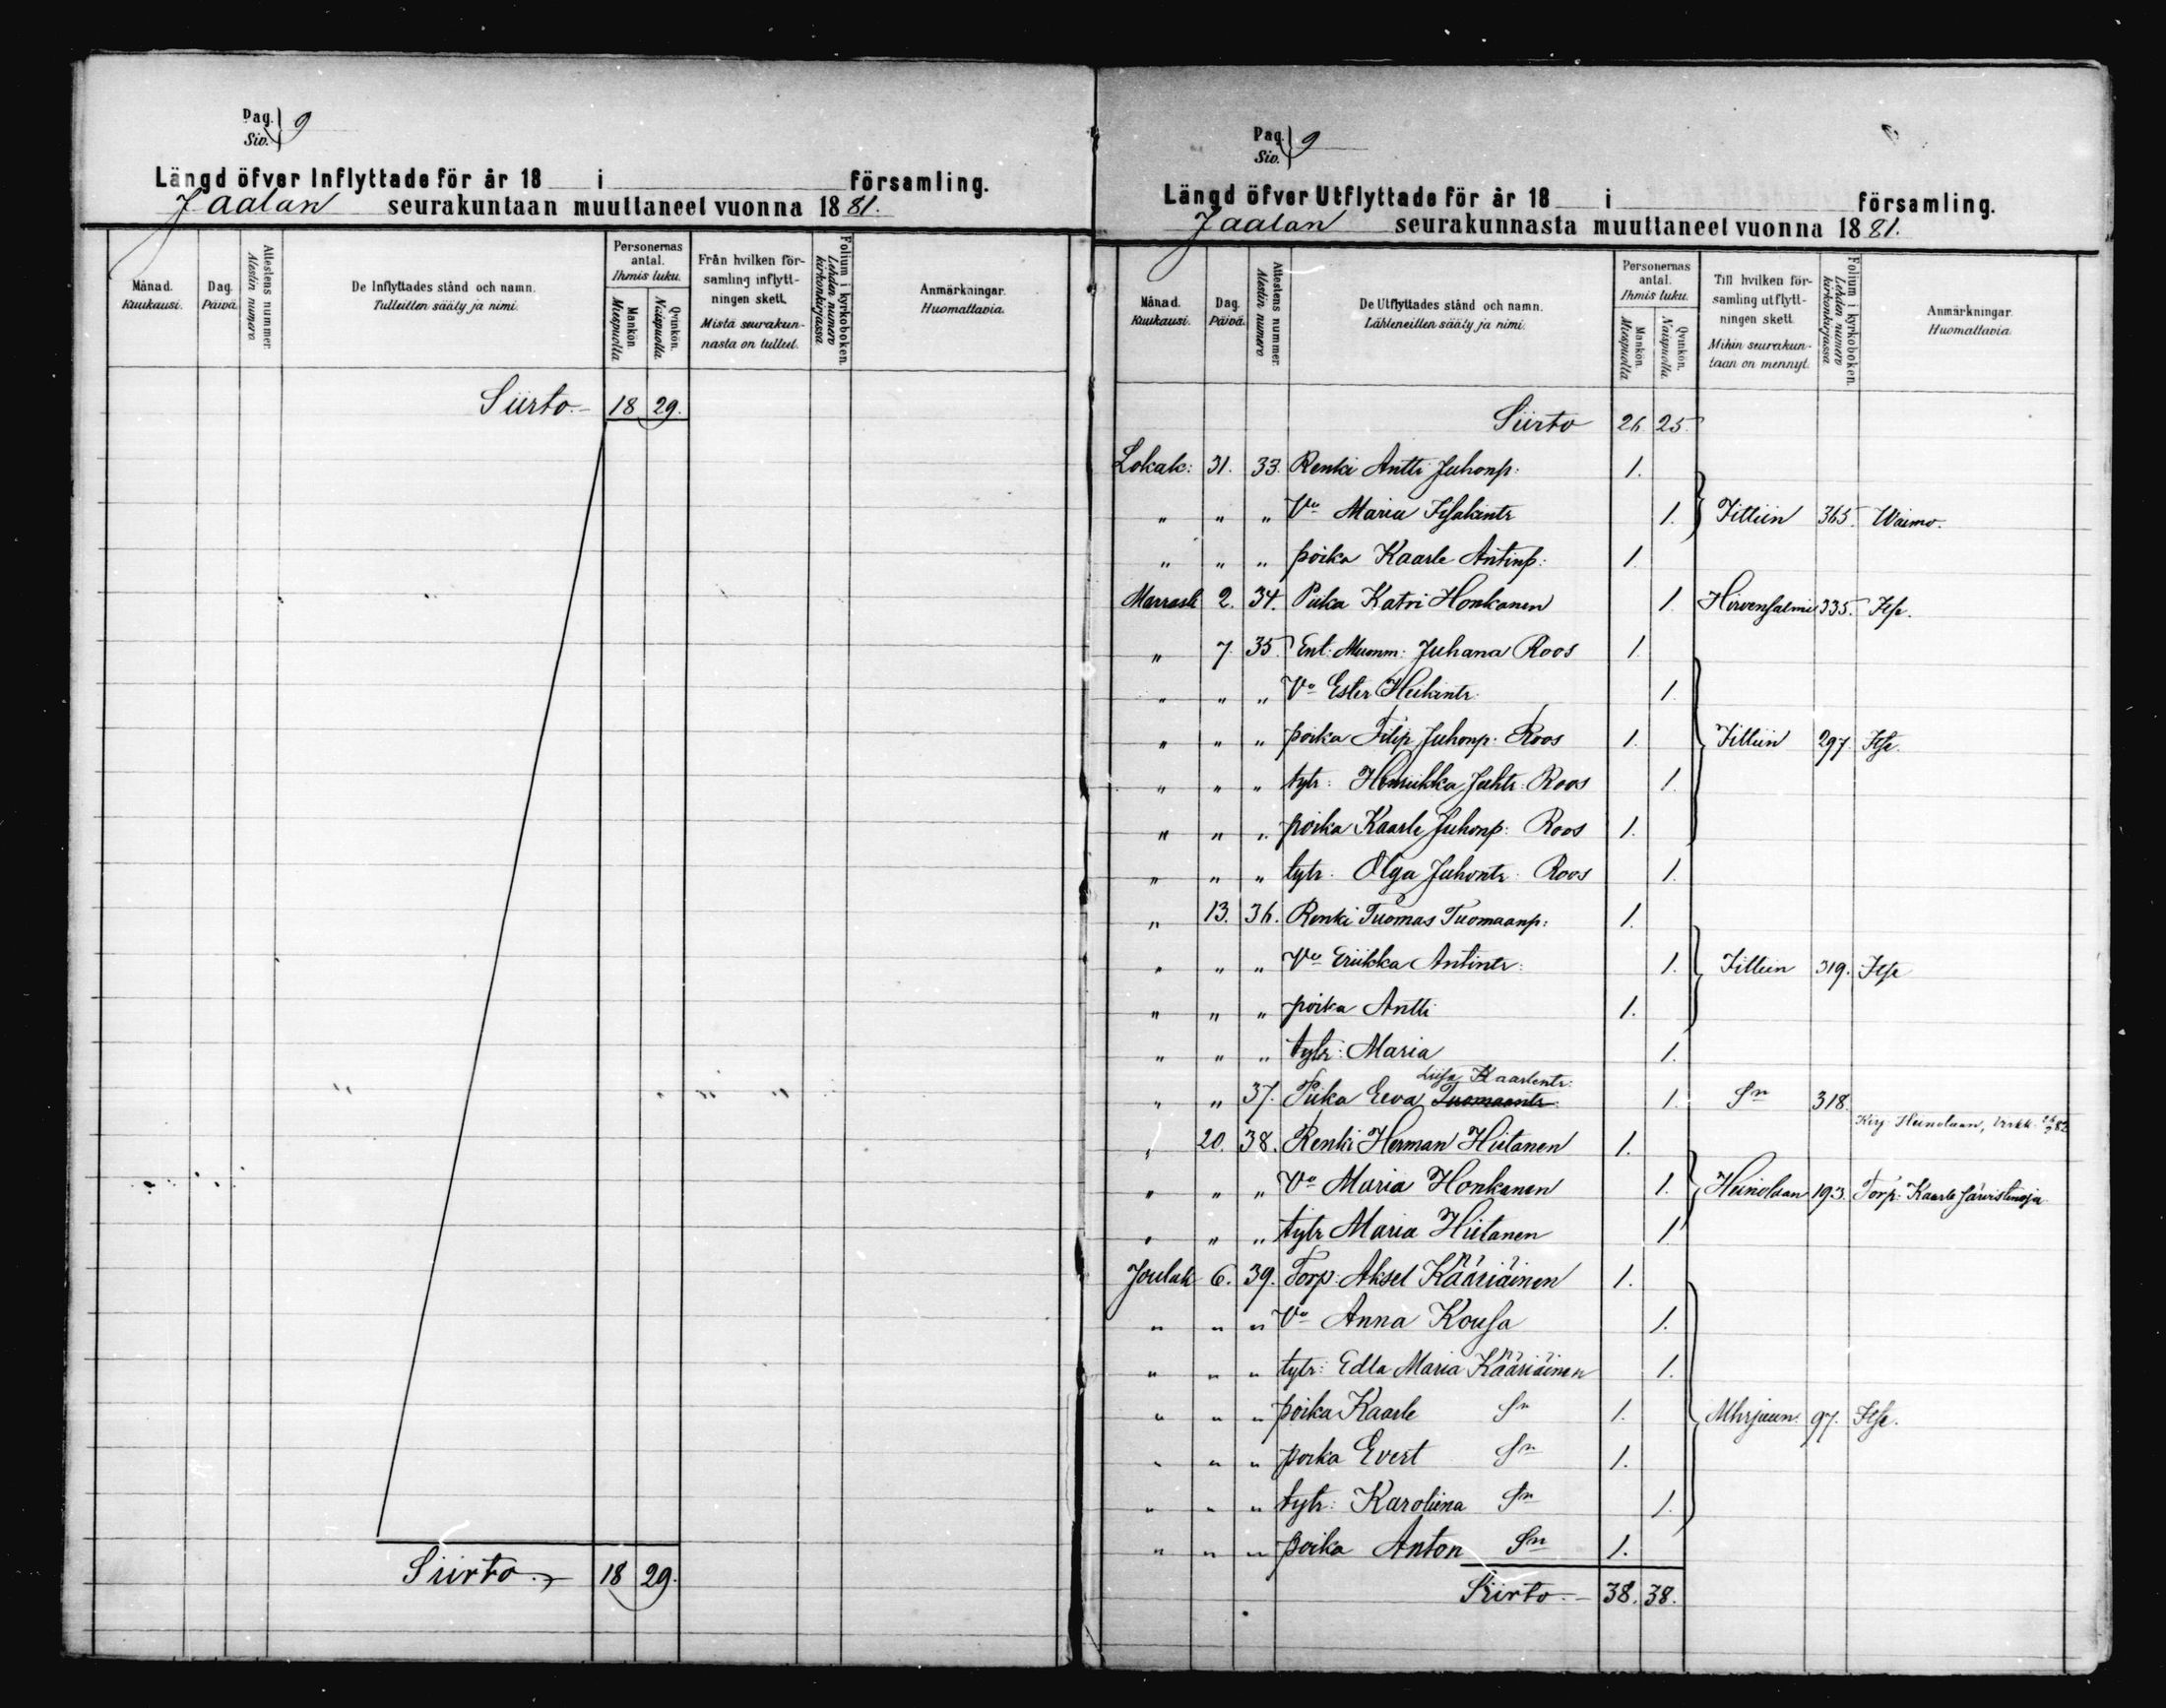 Pag. 9
Siv.
Längd öfver Inflyttade för år 18 i församling.
Jaalan seurakuntaan muuttaneet vuonna 1881.
Månad. Kuukausi.
Dag. Päivä.
Attestens nummer. Atestin numero
De Inflyttades stånd och namn. Tulleitten sääty ja nimi.
Personernas antal. Ihmis luku.
Mankön Miespuolta
Qvinkön. Naispuolta
Från hvilken församling inflyttningen skett. Mistä seurakunnasta on tulleet.
Folium i kyrkoboken. Lehden numero kirkonkirjassa
Anmärkningar. Huomattavia.
Siirto.- 18 29.
Siirto.- 18 29.
Pag. 9
Siv.
Längd öfver Utflyttade för år 18 i församling.
Jaalan seurakunnasta muuttaneet vuonna 1881.
Månad. Kuukausi.
Dag. Päivä.
Attestens nummer. Atestin numero
De Utflyttades stånd och namn. Lähteneitten sääty ja nimi.
Personernas antal. Ihmis luku.
Mankön. Miespuolta
Qvinkön. Naispuolta
Till hvilken församling utflyttningen skett. Mihin seurakuntaan on mennyt.
Folium i kyrkoboken. Lehden numero kirkonkirjassa
Anmärkningar. Huomattavia.
Siirto 26 25.
Lokak: 31. 33. Renki Antti Juhonp: 1.
" " " Vo Maria Isakintr 1. Iittiin 365. Waimo.
" " " poika Kaarle Antinp: 1.
Marrask 2. 34. Piika Katri Honkanen 1. Hirvensalmi 335. Itse.
" 7. 35. Ent: Muonm: Juhana Roos 1.
" " " Vo Ester Heikintr. 1.
" " " poika Filip Juhonp: Roos 1. Iittiin 297. Itse.
" " " tytr: Henriikka Juhtr: Roos 1.
" " " poika Kaarle Juhonp: Roos 1.
" " " tytr. Olga Juhontr. Roos 1.
" 13. 36. Renki Tuomas Tuomaanp: 1.
" " " Vo Eriikka Antintr: 1. Iittiin 319. Itse
" " " poika Antti 1.
" " " tytr: Maria 1.
Liisa Kaarlentr:
" " 37. Piika Eeva Tuomaantr 1. Sn 318.
Kirj. Heinolaan,
" 20. 38. Renki Herman Hietanen 1.
" " " Vo Maria Honkanen 1. Heinolaan 193. Torp: Kaarle Järvistenoja
" " " tytr Maria Hietanen 1
Joulak 6. 39. Torp: Aksel Kääriäinen 1.
" " " Vo Anna Kousa 1.
" " " tytr: Edla Maria Kääriäinen 1.
" " " poika Kaarle Sn 1. Uhrjaan. 97. Itse.
" " " poika Evert Sn 1.
" " " tytr: Karoliina Sn 1.
" " " poika Anton Sn 1.
Siirto.- 38. 38.